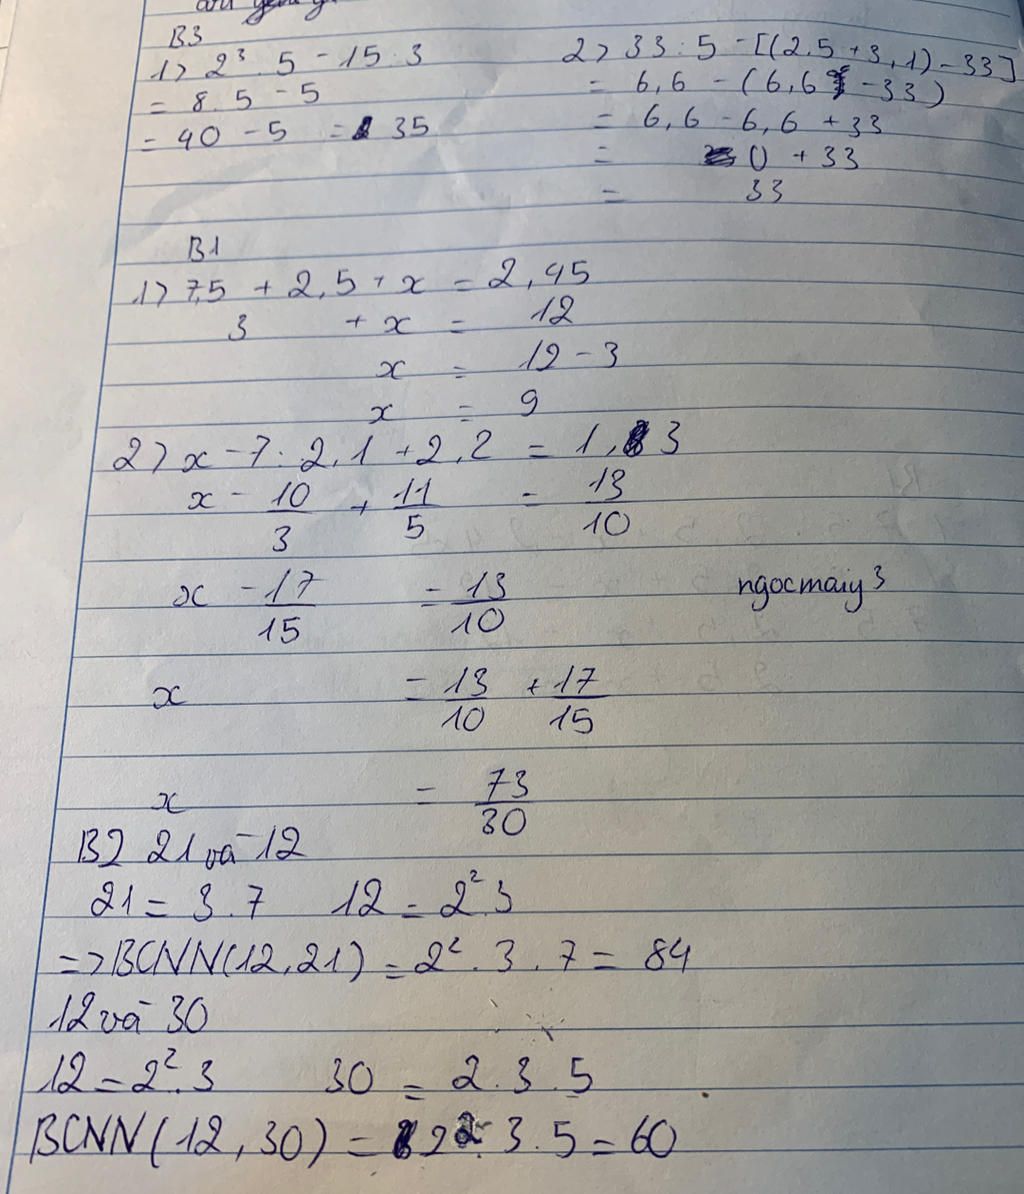 B3
1> 2³ . 5 - 15 : 3
= 8 . 5 - 5
= 40 - 5 = 35
2> 33 : 5 - [(2.5 + 3,1) - 33]
= 6,6 - (6,6 - 33)
= 6,6 - 6,6 + 33
= 0 + 33
= 33
B1
1> 7,5 + 2,5 + x = 2,45
3 + x = 12
x = 12 - 3
x = 9
2> x - 7 : 2,1 + 2,2 = 1,3
x - 10/3 + 11/5 = 13/10
x - 17/15 = 13/10
ngocmaiy3
x = 13/10 + 17/15
x = 73/30
B2 21 và 12
21 = 3 . 7 12 = 2² . 3
=> BCNN(12,21) = 2² . 3 . 7 = 84
12 và 30
12 = 2² . 3 30 = 2 . 3 . 5
BCNN(12,30) = 2² . 3 . 5 = 60